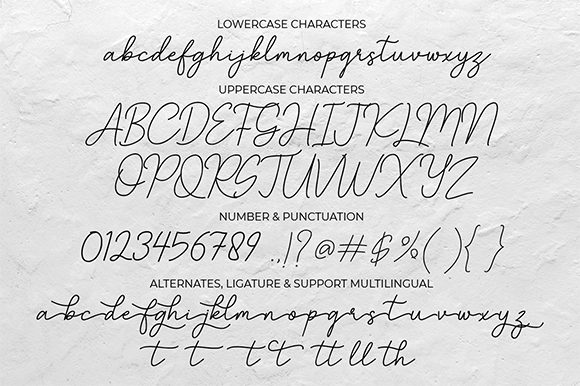 LOWERCASE CHARACTERS
abcdefghijklmnopqrstuvwxyz
UPPERCASE CHARACTERS
ABCDEFGHIJKLMN
OPQRSTUVWXYZ
NUMBER & PUNCTUATION
0123456789 .,!?@#$%( ){ }
ALTERNATES, LIGATURE & SUPPORT MULTILINGUAL
abcdefghijklmnopqrstuvwxyz
t t t tt ll th